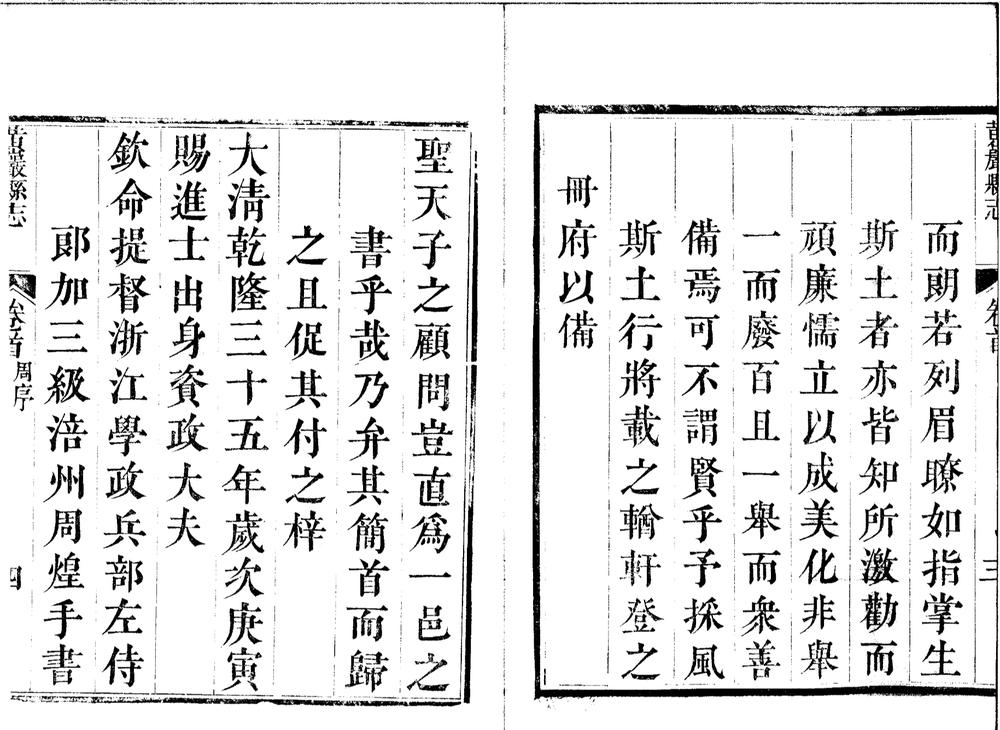 黄巖縣志
卷首
三
而朗若列眉瞭如指掌生
斯土者亦皆知所激勸而
頑廉懦立以成美化非舉
一而廢百且一舉而衆善
備焉可不謂賢乎予採風
斯土行將載之輶軒登之
冊府以備
聖天子之顧問豈直爲一邑之
書乎哉乃弁其簡首而歸
之且促其付之梓
大淸乾隆三十五年歲次庚寅
賜進士出身資政大夫
欽命提督浙江學政兵部左侍
郎加三級涪州周煌手書
黄巖縣志
卷首
周序
四